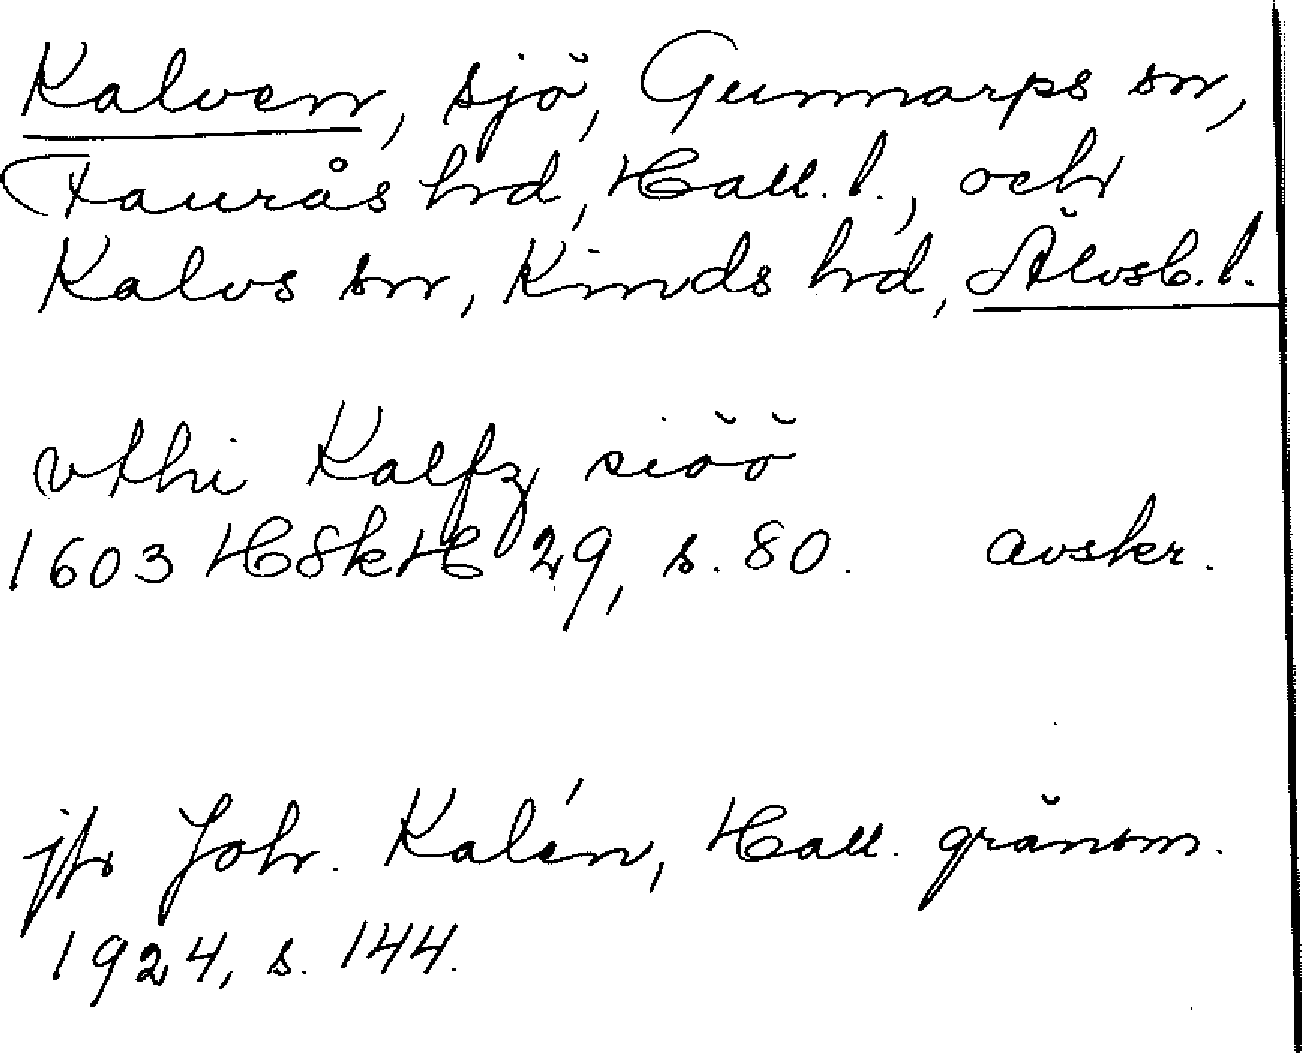 Kalven, sjö, Gunnarps sn,
Faurås hd, Hall. l., och
Kalvs sn, Kinds hd, Älvsb. l.
vthi Kalfz siöö
1603 HSkH 29, s. 80. avskr.
jfr Joh. Kalén, Hall. gränsm.
1924, s. 144.